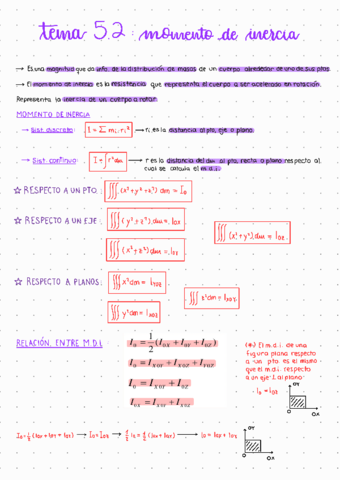 tema 5.2: momento de inercia
→ Es una magnitud que da info. de la distribución de masas de un cuerpo alrededor de uno de sus ptos.
→ El momento de inercia es la resistencia que representa el cuerpo a ser acelerado en rotación.
Representa la inercia de un cuerpo a rotar.
MOMENTO DE INERCIA
→ Sist. discreto: I = ∑ mi · ri² → ri es la distancia al pto, eje o plano.
→ Sist. continuo: I = ∫ r² dm → r es la distancia del dm al pto, recta o plano respecto al
cual se calcula el m.d.i.
☆ RESPECTO A UN PTO: ∭ (x² + y² + z²) dm = Io
☆ RESPECTO A UN EJE: ∭ (y² + z²) dm = Iox
∭ (x² + y²) dm = Ioz
∭ (x² + z²) dm =
☆ RESPECTO A PLANOS: ∭ x² dm = Iyoz
∭ z² dm = Ixoy
∭ y² dm = Ixoz
RELACIÓN ENTRE M.D.I.
Io = 1/2 (Iox + Ioy + Ioz)
Io = Ixoy + Ixoz + Iyoz
Io = Ixoy + Ioz
Iox = Ixoy + Ixoz
(*) El m.d.i. de una
figura plana respecto
a un pto es el mismo
que el m.d.i. respecto
a un eje ⊥ al plano.
OY
OX
OY
OX